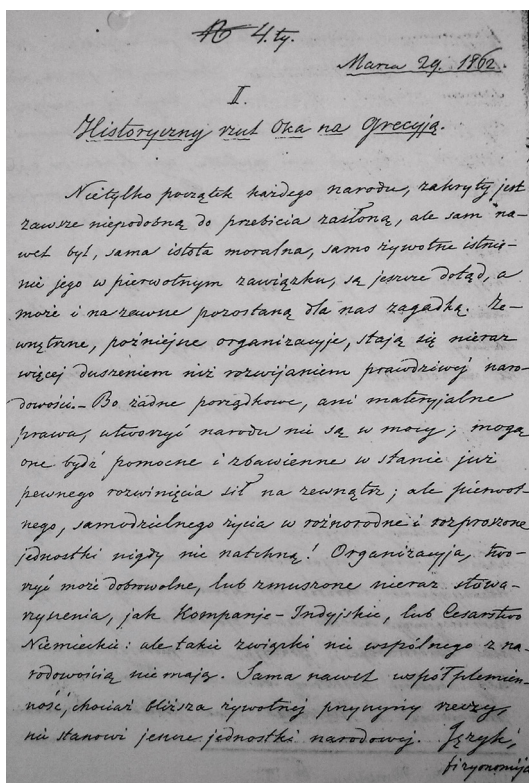 № 4.ty.
Marca 29. 1862.
II.
Historyczny rzut Oka na Grecyją.
Nietylko początek każdego narodu, zakryty jest
zawsze niepodobną do przebicia zasłoną, ale sam na-
wet byt, sama istota moralna, samo żywotne istnie-
nie jego w pierwotnym zawiązku, są jeszcze dotąd, a
może i na zawsze pozostaną dla nas zagadką. Ze-
wnętrzne, późniejsze organizacyje, stają się nieraz
więcej duszeniem niż rozwijaniem prawdziwej naro-
dowości. – Bo żadne porządkowe, ani materyjalne
prawa, utworzyć narodu nie są w mocy; mogą
one bydź pomocne i zbawienne w stanie już
pewnego rozwinięcia sił na zewnątrz; ale pierwot
nego, samodzielnego życia w różnorodne i rozproszone
jednostki nigdy nie natchną! Organizacyja, two-
rzyć może dobrowolne, lub zmuszone nieraz stowa-
rzyszenia, jak Kompanje-Indyjskie, lub Cesarstwo
Niemieckie: ale takie związki nic wspólnego z na-
rodowością nie mają. Sama nawet współplemien-
ność, chociaż bliższa żywotnej przyczyny rzeczy,
nie stanowi jeszcze jednostki narodowej. Język,
fizyonomija